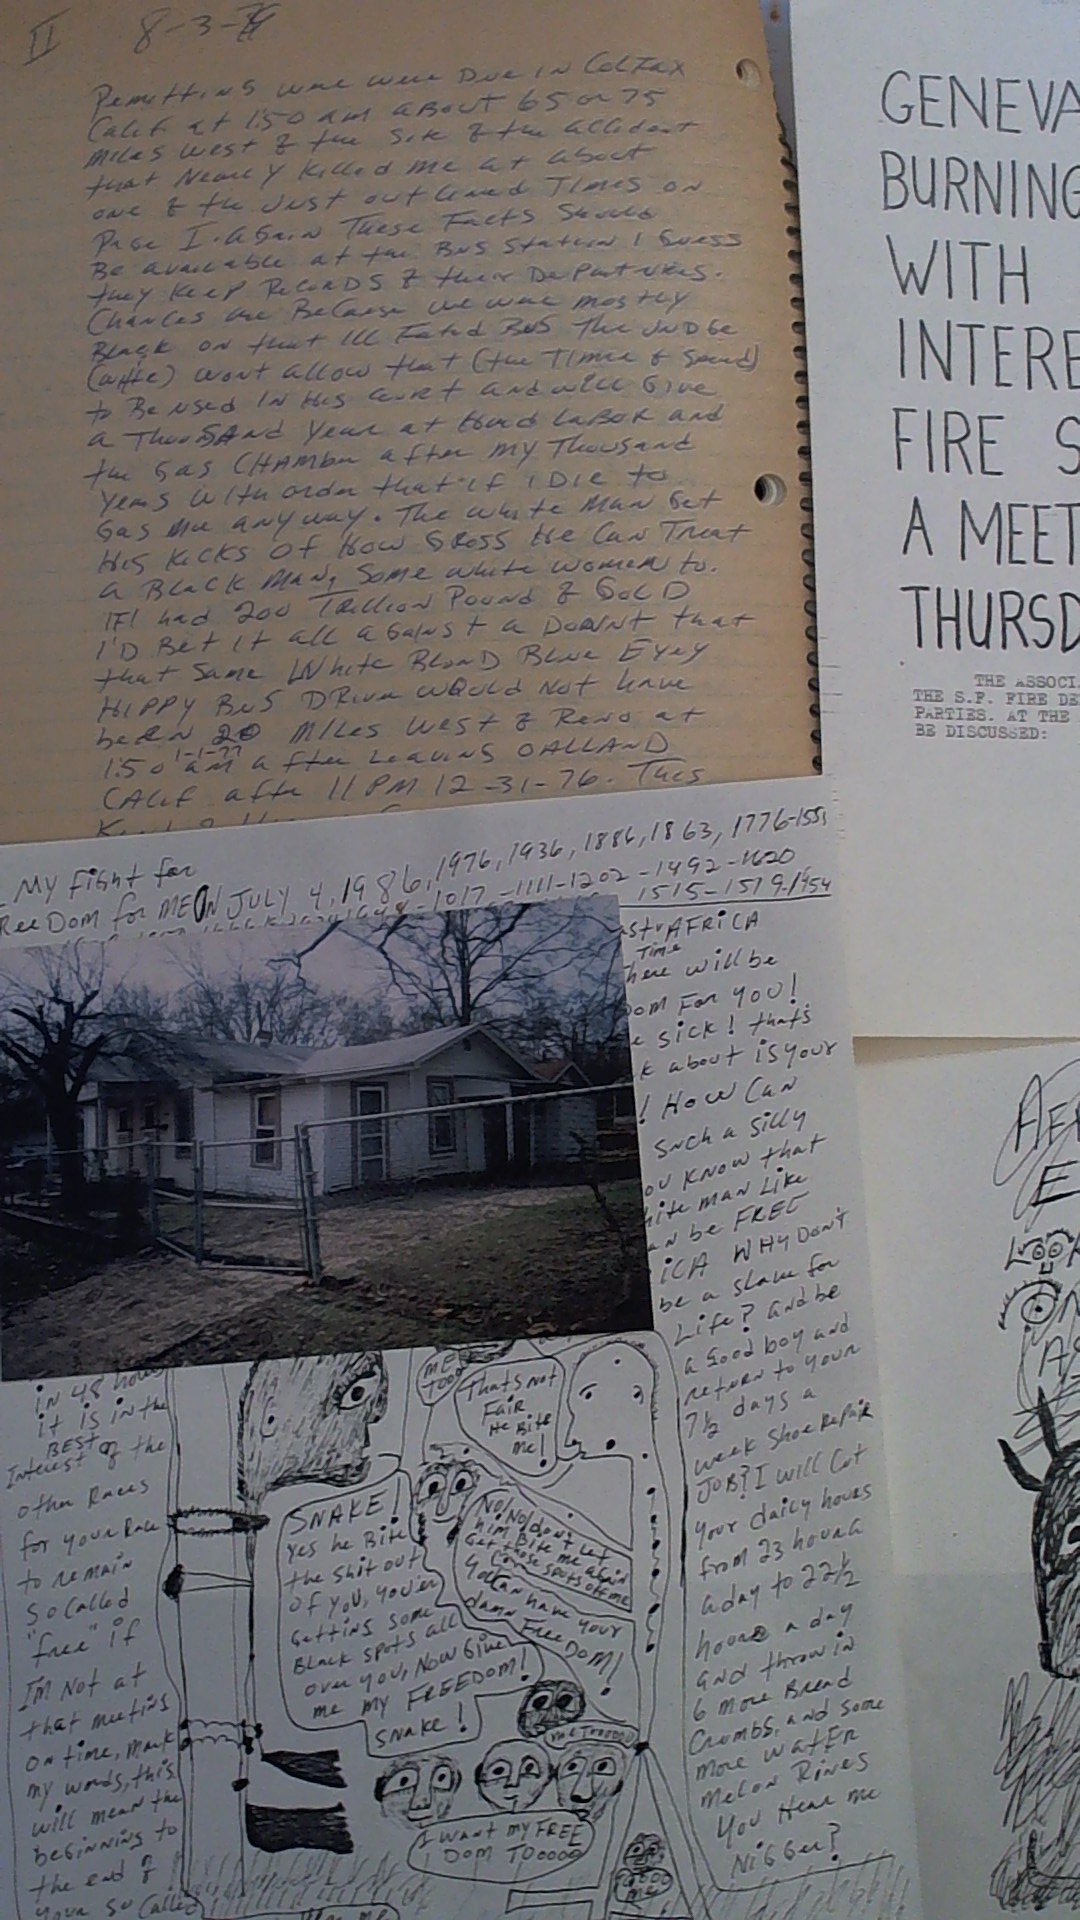 II 8-3-
were Due in Colfax
Calif at 1:50 am about 65 or 75
miles west of the site of the accident
that nearly killed me at about
one of the Just outlined Times on
Page I. again These Facts Should
Be available at the Bus Station I Guess
they Keep Records of their Departures.
Chances are Because we were mostly
Black on that Ill Fated Bus The Judge
wont allow that (the Times of Speed)
to Be used in His court and will Give
a Thousand Year at Hard Labor and
the Gas Chamber after my Thousand
years with order that if I Die to
Gas me anyway. The white man Get
His Kicks of How Gross He Can Treat
a Black man, Some white women to.
If I had 200 Trillion Pound of Gold
I'D Bet it all against a that
that Same White Blond Blue Eyey
Hippy Bus Driver would not have
been 20 miles west of Reno at
1:50 am 1-1-77 after Leaving OAKLAND
CALIF after 11 PM 12-31-76. This
GENEVA
BURNING
WITH
INTERE
FIRE S
A MEET
THURSD
THE ASSOCI
THE S.F. FIRE DE
PARTIES. AT THE
BE DISCUSSED:
My Fight for
ReeDom for ME ON JULY 4, 1986, 1976, 1936, 1886, 1863, 1776-1551
-1017-1111-1202-1492-1620
1515-1519-1454
AFRICA
Time
There will be
Dom For you!
e sick! thats
k about is your
! How Can
Such a silly
ou know that
hite man Like
an be FREE
iCA WHY Don't
be a slave for
Life? and be
a Good boy and
return to your
7½ days a
week Shoe Repair
JOB? I will Cut
your daily hours
from 23 hours
a day to 22½
hours a day
and throw in
6 more Bread
Crumbs, and some
more water
melon Rines
You Hear me
Nigger?
in 48 hours
it is in the
BEST
Interest of the
other Races
for your Race
to remain
so called
"free" if
I'm Not at
that meeting
on time, mark
my words, this
will mean the
beginning to
the end of
your so Called
ME
TOOO
Thats not
Fair
He Bite
me!
SNAKE!
Yes he Bite
the shit out
of you, you'er
Getting some
Black spots all
over you, Now Give
me my FREEDOM!
SNAKE!
No/No/don't Let
him Bite me again
Get those spots off me
you Can have your
damn FreeDOM!
me Tooooo
I want my FREE
DOM TOOOOO
me
AFR
E